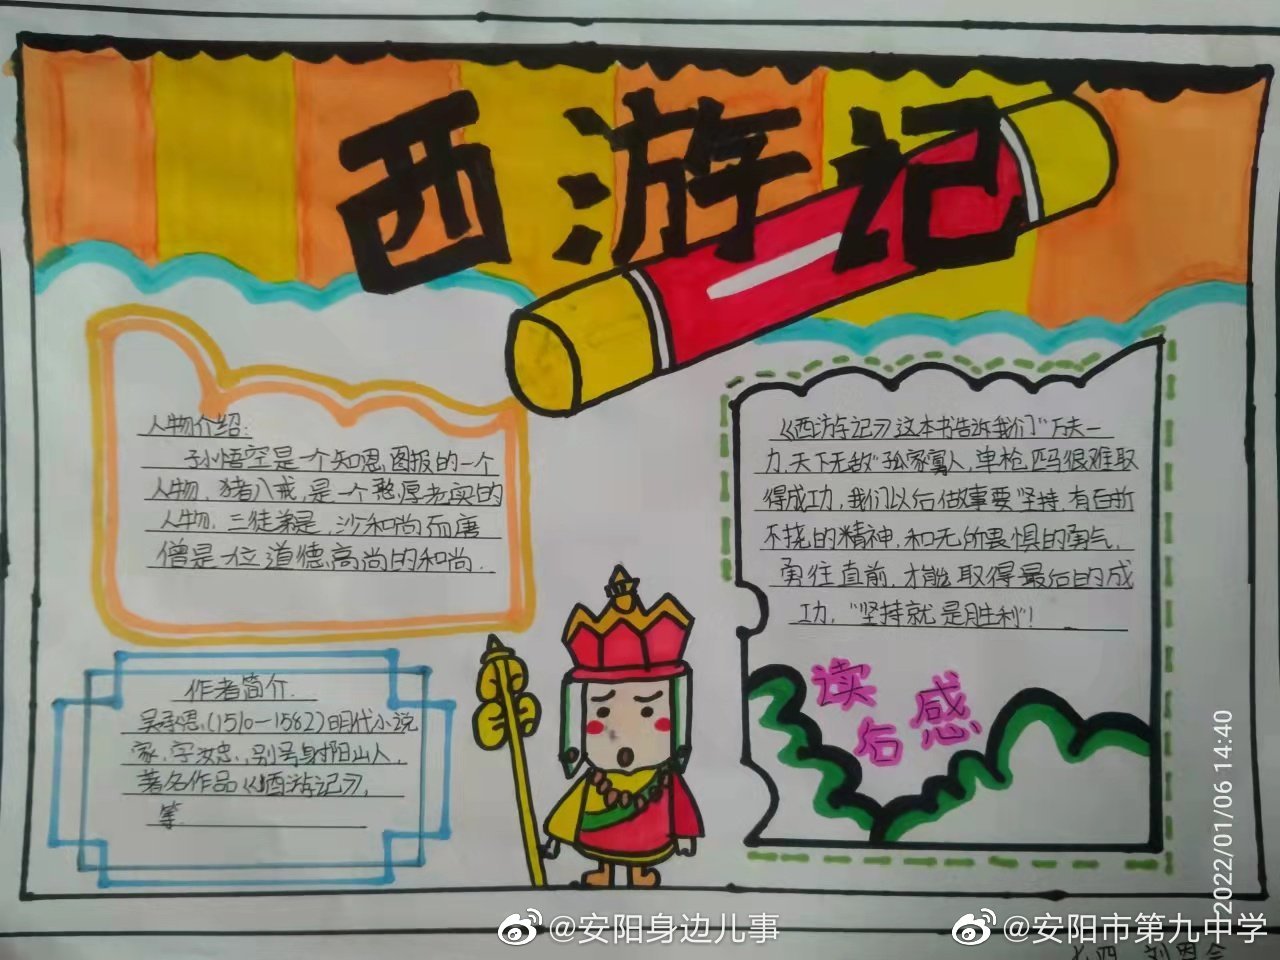 西游记
人物介绍:
孙悟空是一个知恩图报的一个
人物，猪八戒，是一个憨厚老实的
人物，三徒弟是，沙和尚而唐
僧是一位道德高尚的和尚.
作者简介.
吴承恩.(1510—1582)明代小说
家，字汝忠，别号射阳山人，
著名作品《西游记》，
等.
《西游记》这本书告诉我们"万夫一
力，天下无敌"
人，单枪匹马很难取
得成功，我们以后做事要坚持，有百折
不挠的精神，和无所畏惧的勇气，
勇往直前，才能取得最后的成
功，"坚持就是胜利"!
读后感
2022/01/06 14:40
@安阳身边儿事
@安阳市第九中学